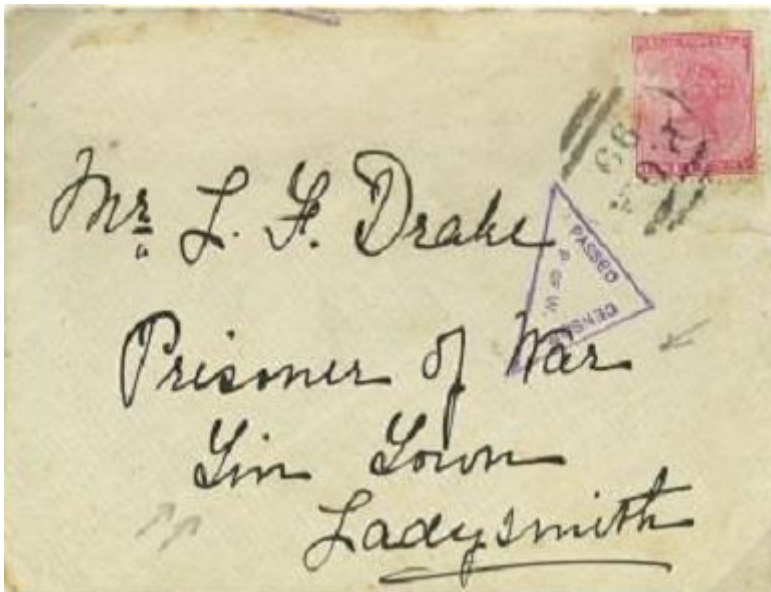 Mr. L. F. Drake
PASSED
P. OF W.
Prisoner of War
Tin Town
Ladysmith